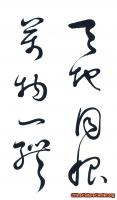 天地同根
萬物一體